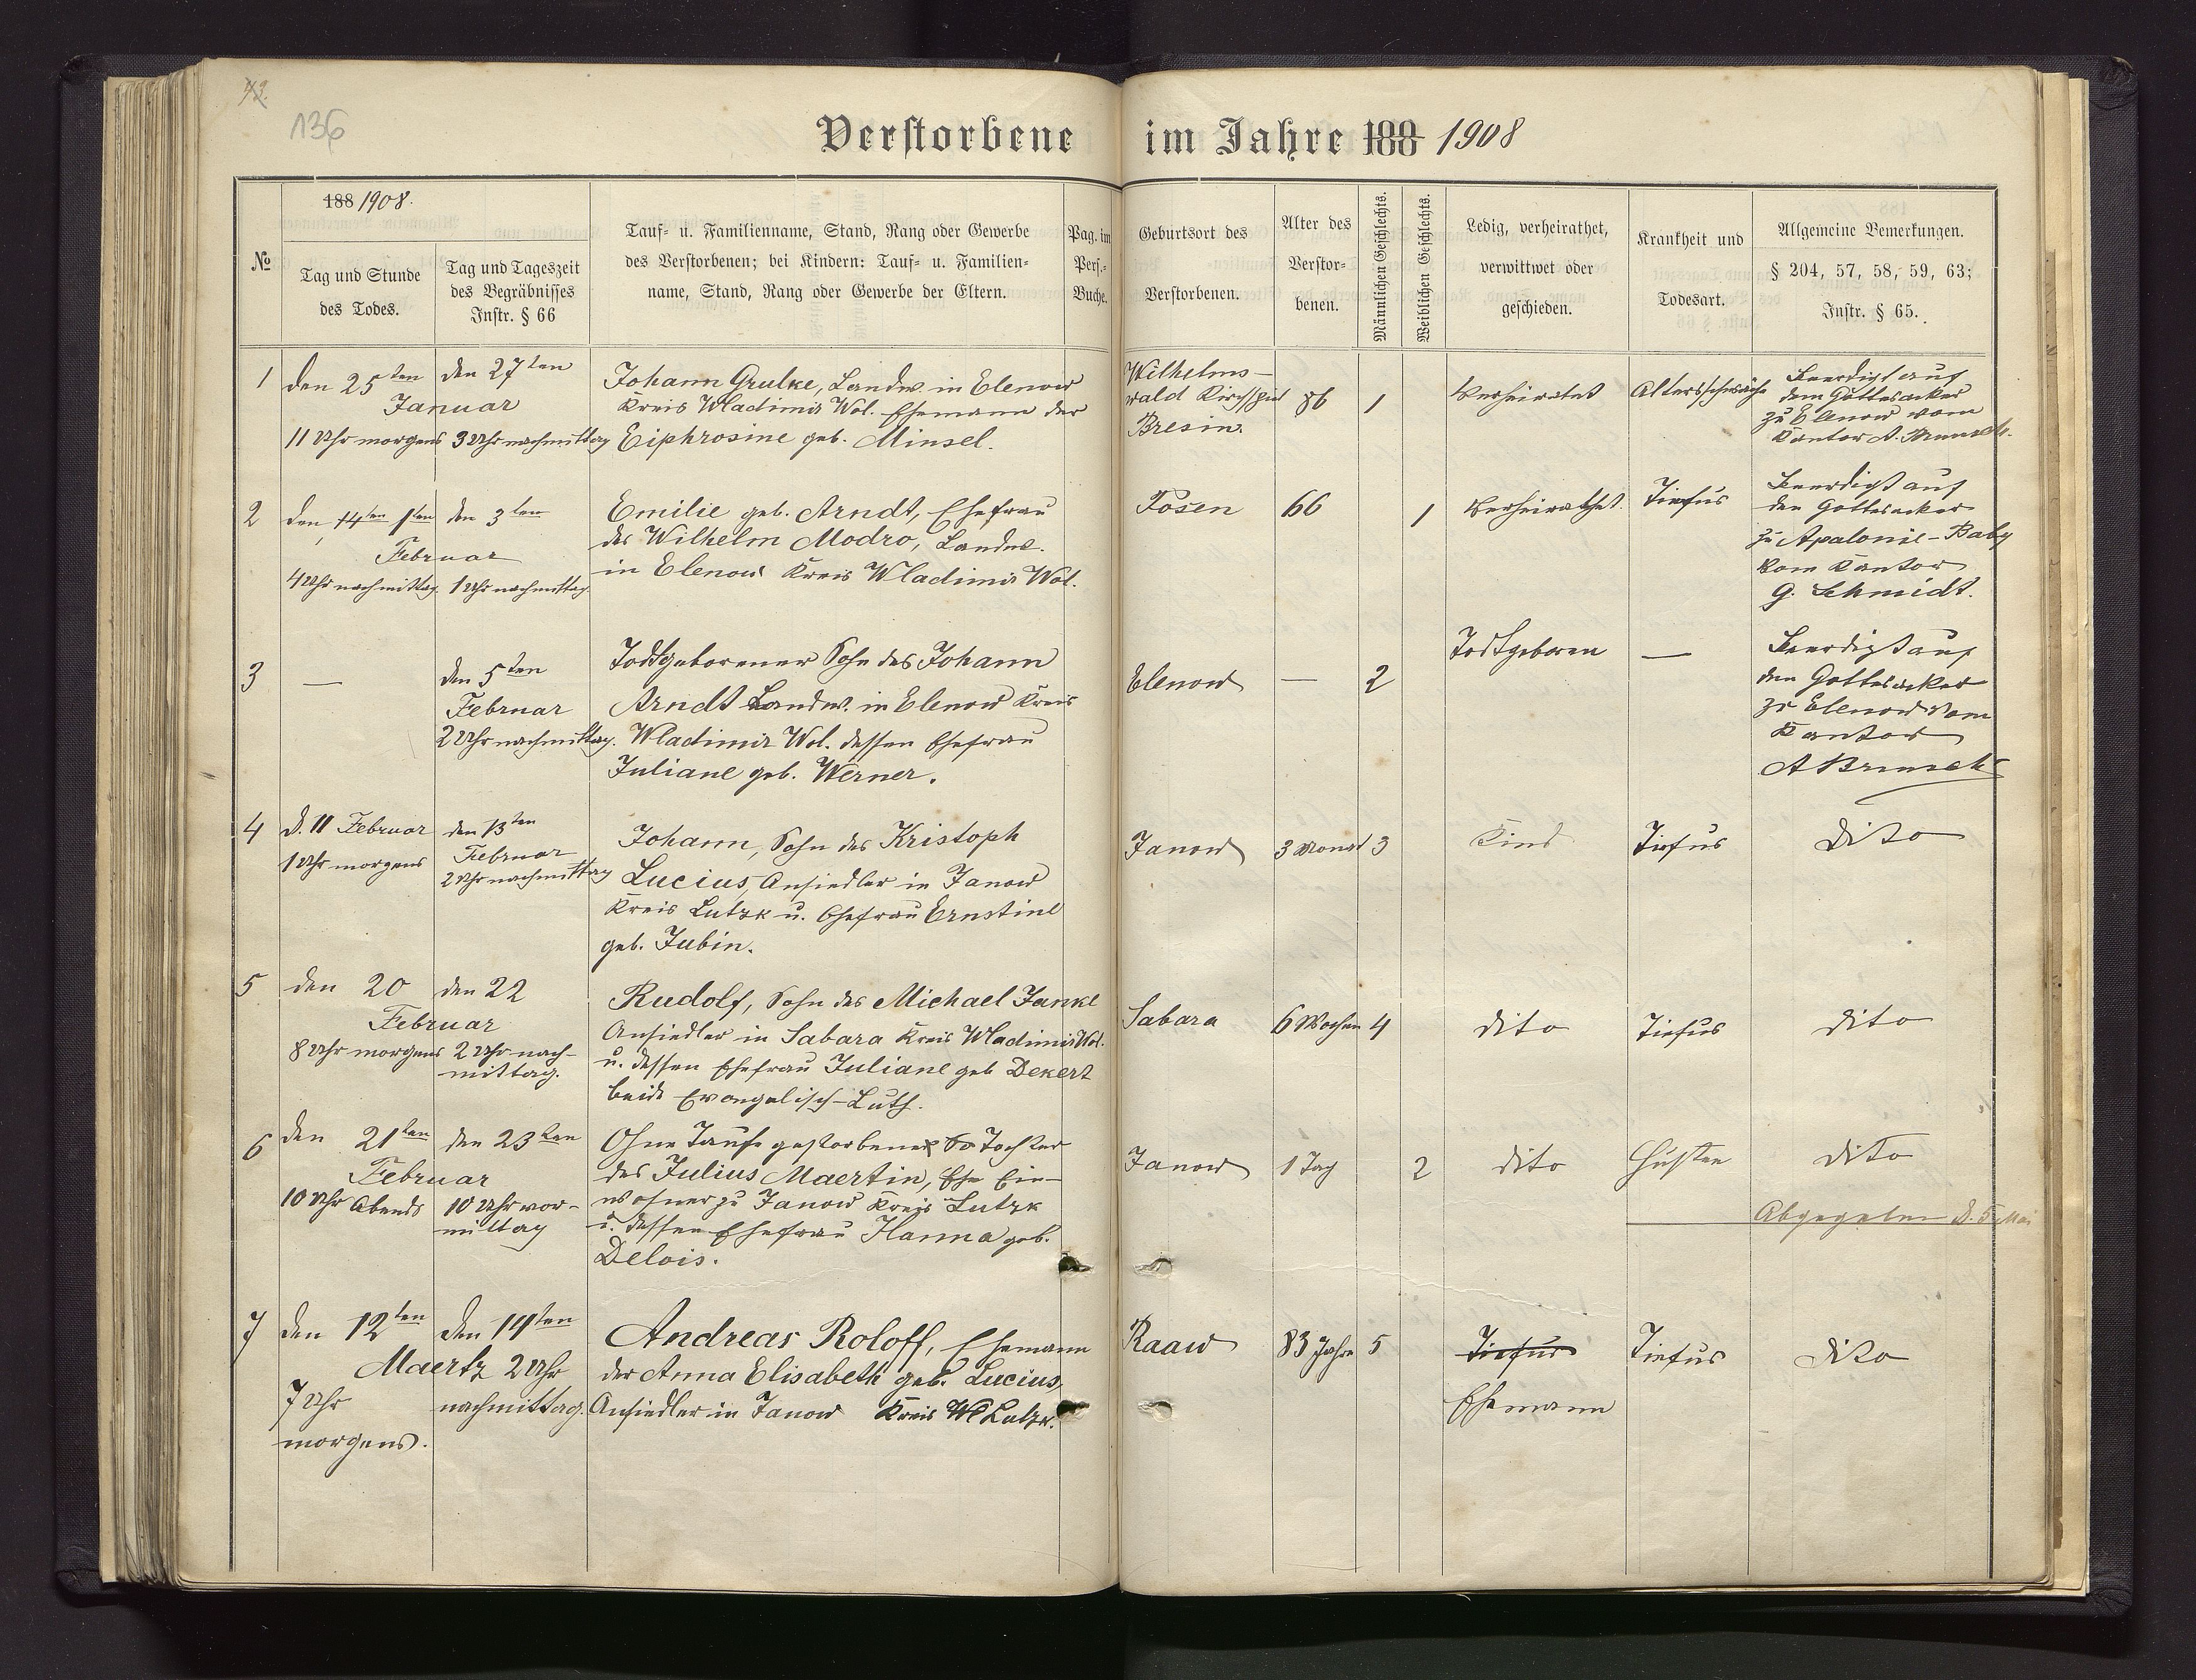 136
Verstorbene im Jahre 188 1908
188 1908.
№
Tag und Stunde
des Todes.
Tag und Tageszeit
des Begräbnisses
Instr. § 66
Tauf- u. Familienname, Stand, Rang oder Gewerbe
des Verstorbenen; bei Kindern: Tauf- u. Familien-
name, Stand, Rang oder Gewerbe der Eltern.
Pag. im
Pers.-
Buche.
Geburtsort des
Verstorbenen.
Alter des
Verstor-
benen.
Männlichen Geschlechts.
Weiblichen Geschlechts.
Ledig, verheirathet,
verwittwet oder
geschieden.
Krankheit und
Todesart.
Allgemeine Bemerkungen.
§ 204, 57, 58, 59, 63;
Instr. § 65.
1
den 25ten
Januar
11 Uhr morgens
den 27ten
3 Uhr nachmittag
Johann Grulke, Landw. in Elenow
Kreis Wladimir Wol. Ehemann der
Eiphrosine geb. Minsel.
Wilhelms-
wald Kirchspiel
Bresin.
86
1
Verheiratet
Altersschwäche
Beerdigt auf
dem Gottesacker
zu Elenow vom
Kantor A.
2
den 14ten 1ten
Februar
4 Uhr nachmittag
den 3ten
1 Uhr nachmittag
Emilie geb. Arndt, Ehefrau
des Wilhelm Modro, Landw.
in Elenow Kreis Wladimir Wol.
Posen
66
1
Verheirathet.
Tiefus
Beerdigt auf
den Gottesacker
zu Apalonie-Baby
vom Kantor
G. Schmidt.
3
—
den 5ten
Februar
2 Uhr nachmittag.
Todtgeborener Sohn des Johann
Arndt Landw. in Elenow Kreis
Wladimir Wol. dessen Ehefrau
Juliane geb. Werner.
Elenow
—
2
Todtgeboren
—
Beerdigt auf
den Gottesacker
zu Elenow vom
Kantor
A
4
d. 11 Februar
1 Uhr morgens
den 13ten
Februar
2 Uhr nachmittag
Johann, Sohn des Kristoph
Lucius, Ansiedler in Janow
Kreis Lutzk u. Ehefrau Ernstine
geb. Jubin.
Janow
3 Monat
3
Kind
Tiefus
dito
5
den 20
Februar
8 Uhr morgens
den 22
2 Uhr nach-
mittag.
Rudolf, Sohn des Michael Janke
Ansiedler in Sabara Kreis Wladimir Wol.
u. dessen Ehefrau Juliane geb Dekert
beide Evangelisch-Luth.
Sabara
6 Wochen
4
dito
Tiefus
dito
6
den 21ten
Februar
10 Uhr Abends
den 23ten
10 Uhr vor-
mittag
Ohne Taufe gestorbene So Tochter
des Julius Maertin, Ehe Ein-
wohner zu Janow Kreis Lutzk
u. dessen Ehefrau Hanna geb.
Delois.
Janow
1 Tag
2
dito
Husten
dito
Abgegeben d. 5 Mai
7
den 12ten
Maertz
7 Uhr
morgens.
den 14ten
2 Uhr
nachmittag.
Andreas Roloff, Ehemann
der Anna Elisabeth geb. Lucius,
Ansiedler in Janow Kreis Wl Lutzk.
Raaw
83 Jahre
5
Tiefus
Ehemann
Tiefus
dito